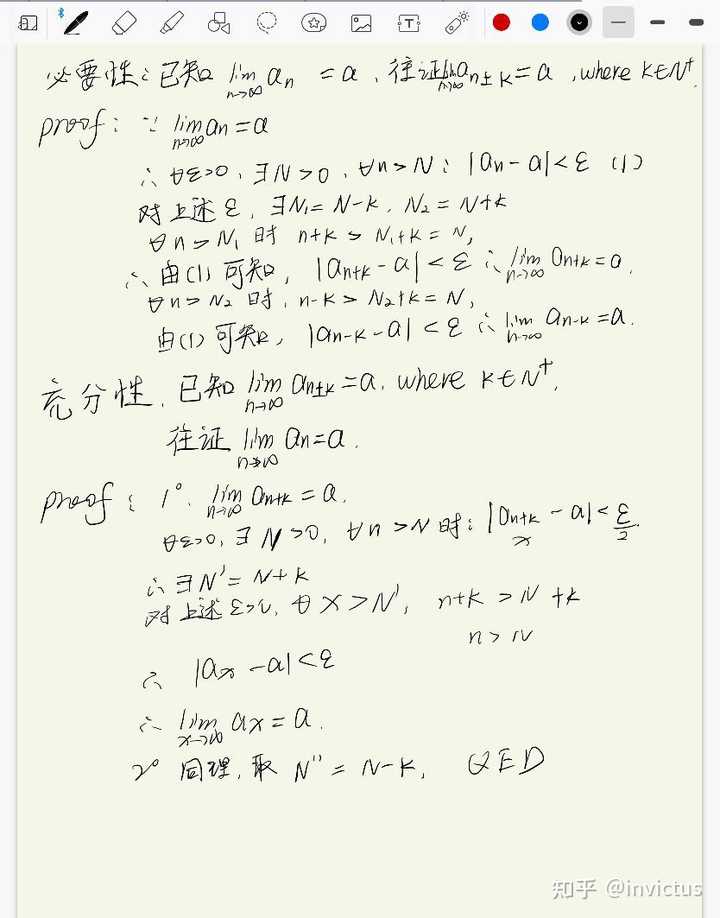 必要性:已知 lim n→∞ an = a, 往证 lim n→∞ an±k = a, where k∈N⁺.
proof: ∵ lim n→∞ an = a
∴ ∀ε>0, ∃N>0, ∀n>N: |an-a|<ε (1)
对上述 ε, ∃N₁=N-k, N₂=N+k
∀n>N₁ 时 n+k>N₁+k=N,
∴ 由(1)可知, |an+k-a|<ε ∴ lim n→∞ an+k=a.
∀n>N₂ 时, n-k>N₂+k=N,
由(1)可知, |an-k-a|<ε ∴ lim n→∞ an-k=a.
充分性, 已知 lim n→∞ an±k=a. where k∈N⁺,
往证 lim n→∞ an=a.
proof: 1°. lim n→∞ an+k=a.
∀ε>0, ∃N>0, ∀n>N 时: |an+k-a|<ε/2.
x
∴ ∃N'=N+k
对上述 ε>0, ∀x>N', n+k>N+k
n>N
∴ |ax-a|<ε
∴ lim x→∞ ax=a.
2° 同理, 取 N''=N-k, QED
知乎 @invictus